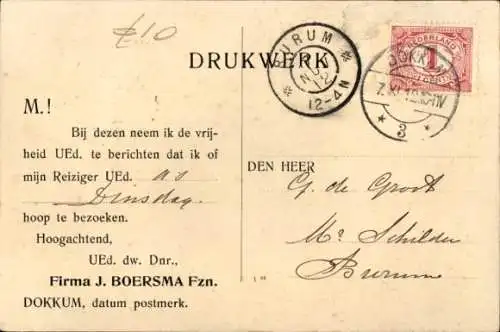 £10
DRUKWERK
BURUM
12
12-4N
NEDERLAND
1
DOKKUM
3
M.!
Bij dezen neem ik de vrij-
heid UEd. te berichten dat ik of
mijn Reiziger UEd. a s
Dinsdag
hoop te bezoeken.
Hoogachtend,
UEd. dw. Dnr.,
Firma J. BOERSMA Fzn.
DOKKUM, datum postmerk.
DEN HEER
G. de Groot
Mr Schilder
Burum